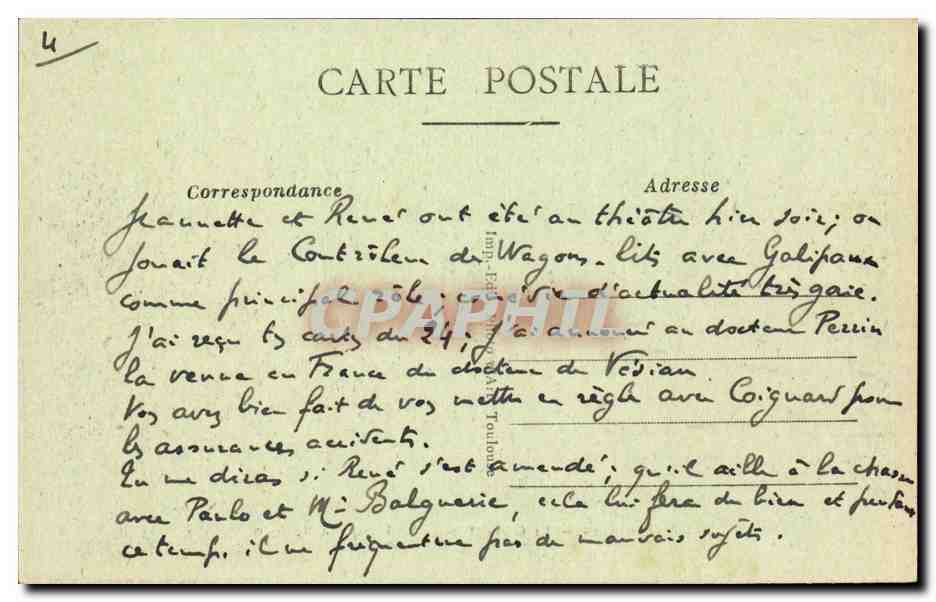 4
CARTE POSTALE
Correspondance
Adresse
Jeannette et René ont été au théâtre hier soir; on
jouait le Contrôleur des Wagons-lits avec Galipaux
comme principal rôle; comédie d'actualité très gaie.
J'ai reçu tes cartes du 24; j'ai annoncé au docteur Perrin
la venue en France du docteur de Vésian
Vous avez bien fait de vous mettre en règle avec Coignard pour
les assurances accidents.
Tu me diras si René s'est amendé; qu'il aille à la chasse
avec Paulo et Mr Balguerie, cela lui fera du bien et pendant
ce temps il ne fréquentera pas de mauvais sujets.
Imp.-Ed. Toulouse
CPAPHIL